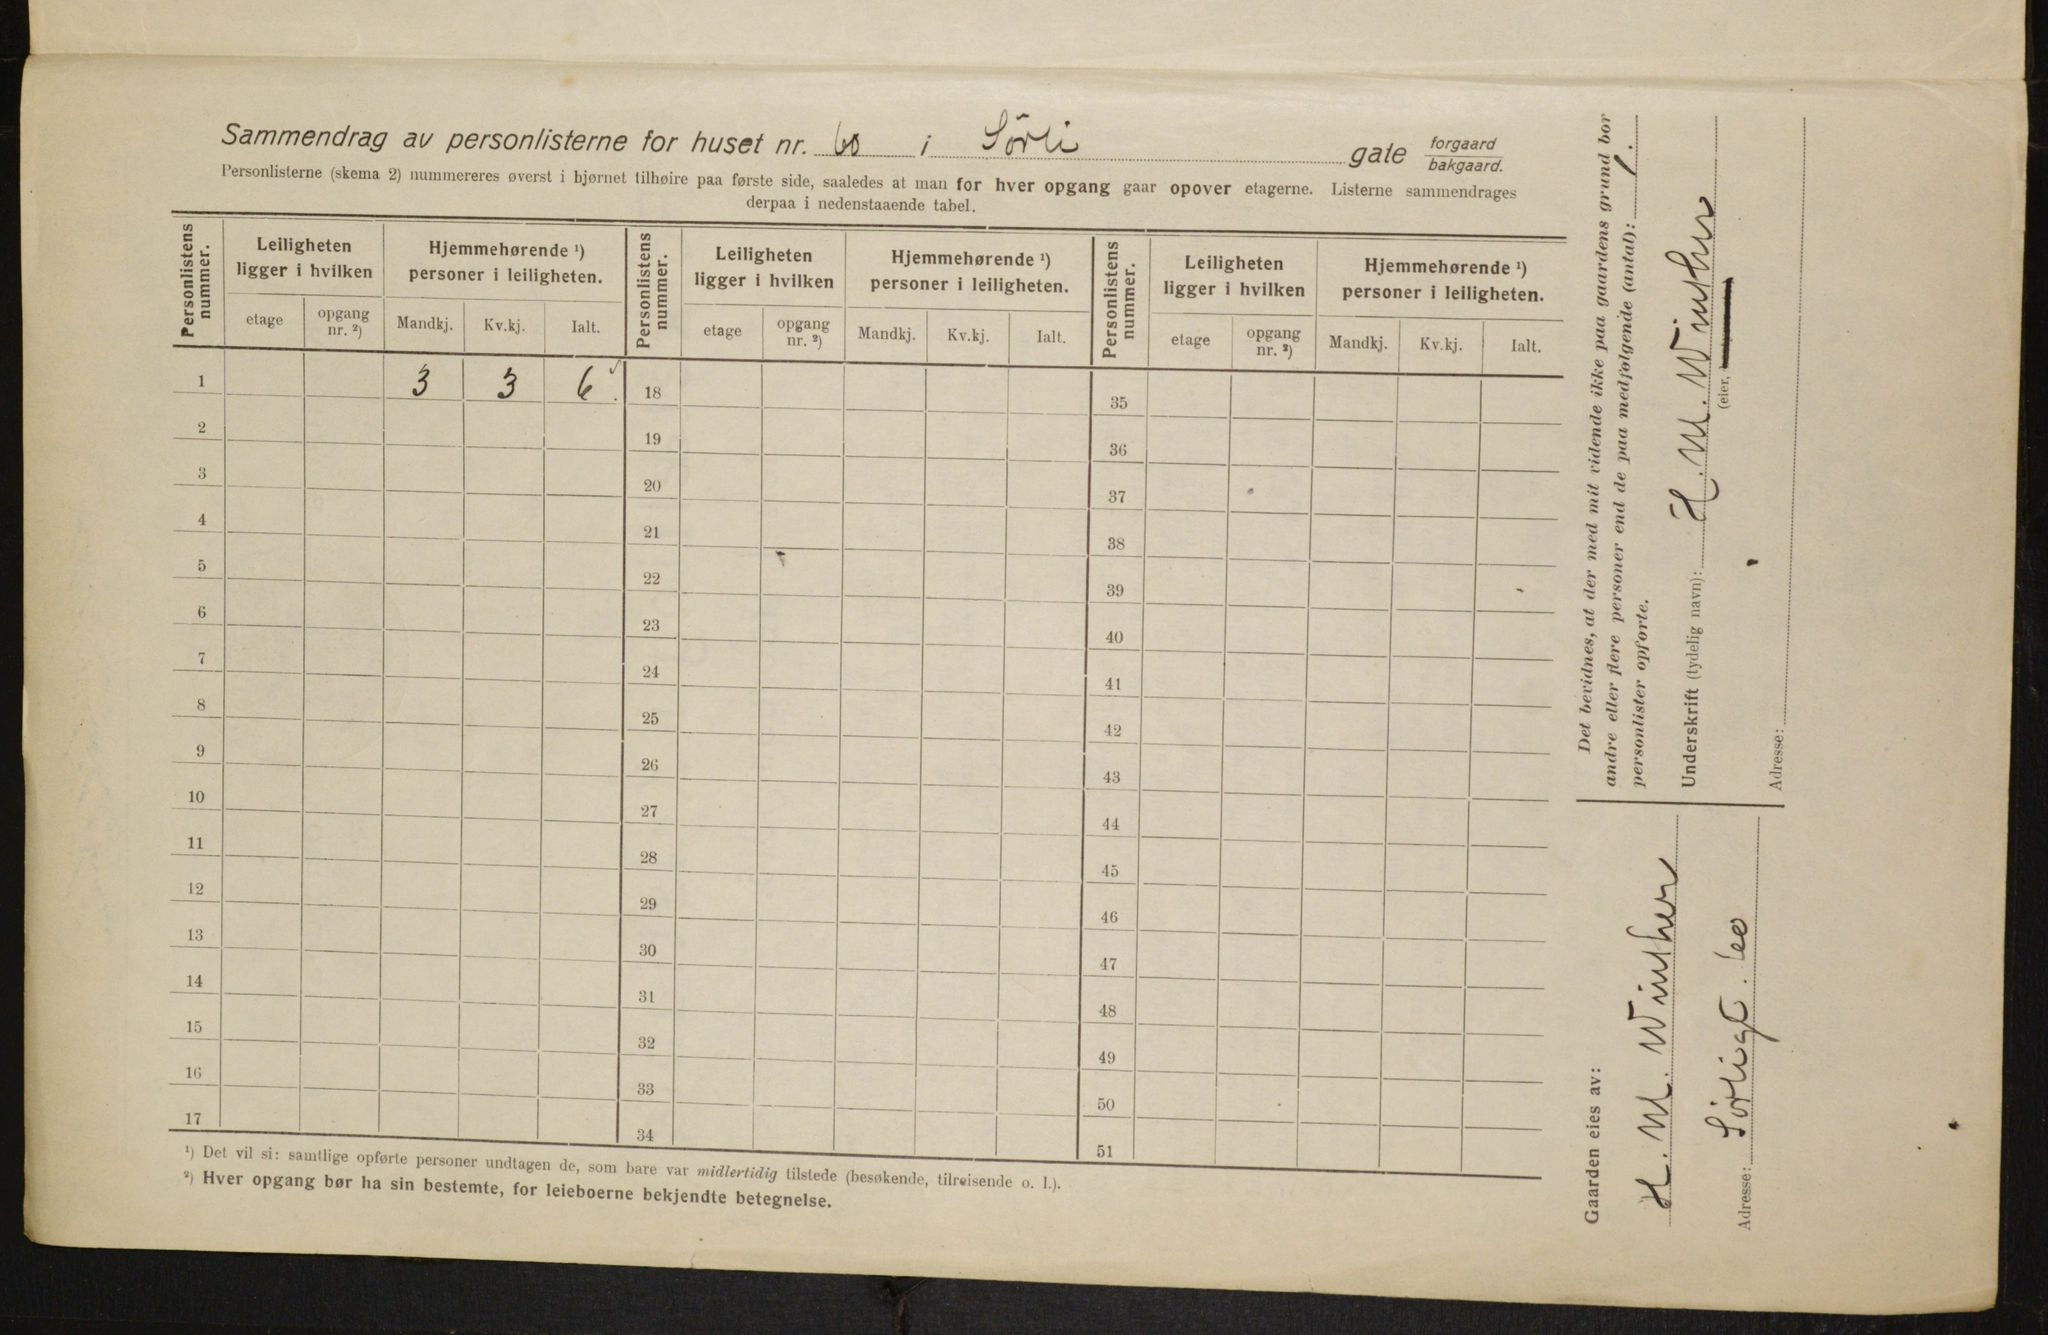 Sammendrag av personlisterne for huset nr. 60 i Sörli gate forgaard
bakgaard.
Personlisterne (skema 2) nummereres øverst i hjørnet tilhøire paa første side, saaledes at man for hver opgang gaar opover etagerne. Listerne sammendrages
derpaa i nedenstaaende tabel.
Personlistens nummer. Leiligheten ligger i hvilken Hjemmehørende ¹) personer i leiligheten. Personlistens nummer. Leiligheten ligger i hvilken Hjemmehørende ¹) personer i leiligheten. Personlistens nummer. Leiligheten ligger i hvilken Hjemmehørende ¹) personer i leiligheten.
etage opgang nr. ²) Mandkj. Kv.kj. Ialt. etage opgang nr. ²) Mandkj. Kv.kj. Ialt. etage opgang nr. ²) Mandkj. Kv.kj. Ialt.
1 3 3 6 18 35
2 19 36
3 20 37
4 21 38
5 22 39
6 23 40
7 24 41
8 25 42
9 26 43
10 27 44
11 28 45
12 29 46
13 30 47
14 31 48
15 32 49
16 33 50
17 34 51
¹) Det vil si: samtlige opførte personer undtagen de, som bare var midlertidig tilstede (besøkende, tilreisende o. l.).
²) Hver opgang bør ha sin bestemte, for leieboerne bekjendte betegnelse.
Det bevidnes, at der med mit vidende ikke paa gaardens grund bor
andre eller flere personer end de paa medfølgende (antal): 1.
personlister opførte.
Underskrift (tydelig navn): H. M. Winther
(eier,
Adresse:
Gaarden eies av:
H. M. Winther
Adresse: Sörligt. 60